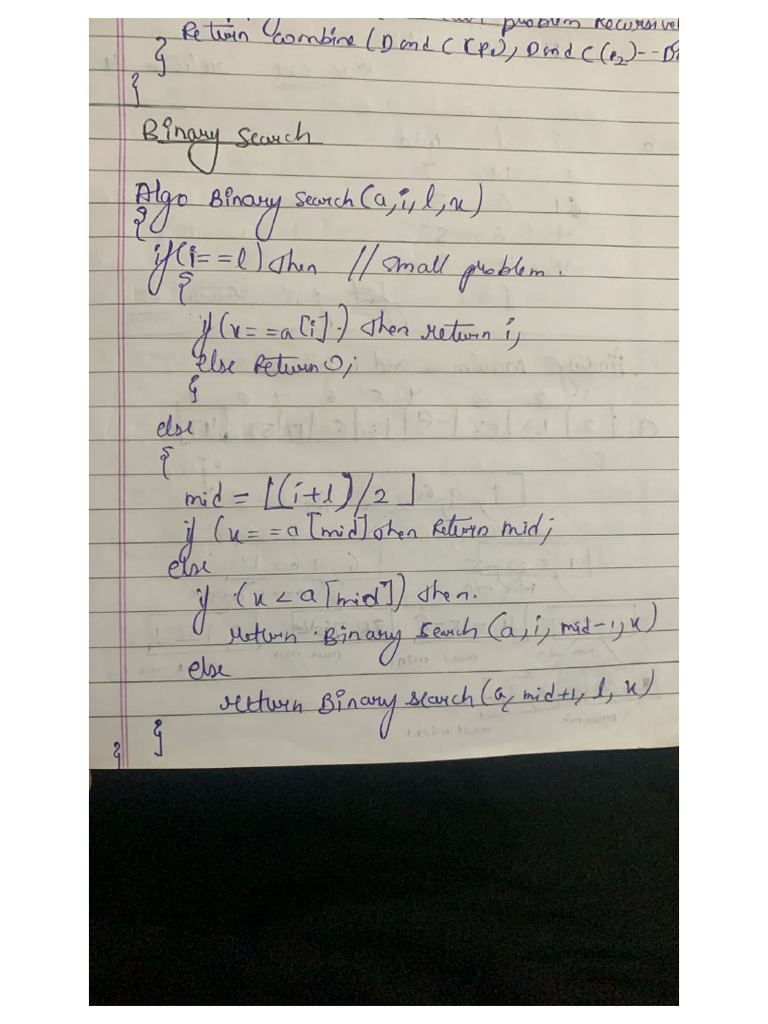 problem Recursivel
Return Combine (D and C (P1), D and C (P2)--D
}
}
Binary Search
Algo Binary Search (a, i, l, x)
{
if (i == l) then // small problem.
{
if (x == a[i]) then return i;
else Return 0;
}
else
{
mid = ⌊(i+l)/2⌋
if (x == a [mid] then Return mid;
else
if (x < a [mid]) then.
return Binary Search (a, i, mid-1, x)
else
return Binary Search (a, mid+1, l, x)
}
}